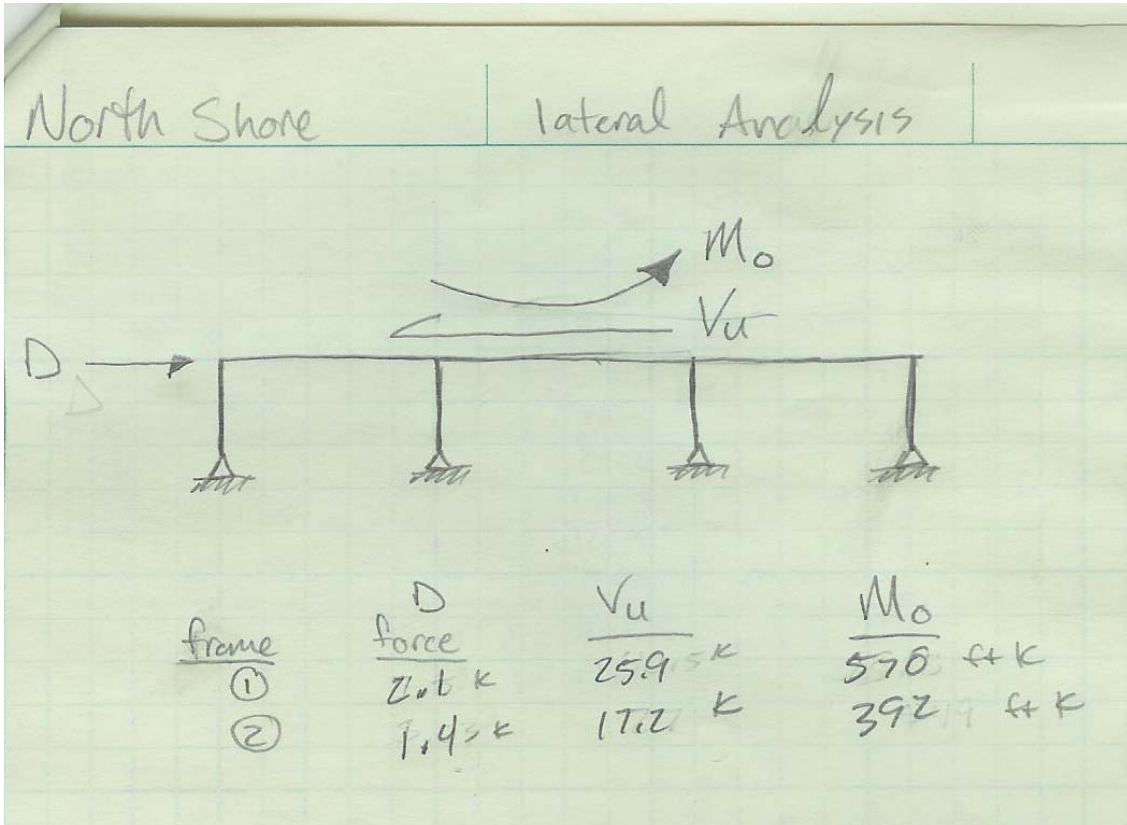 North Shore lateral Analysis
Mo
Vu
D
D Vu Mo
frame force
① 2.1 K 25.9 K ft K
② 1.4 K 17.2 K 392 ft K